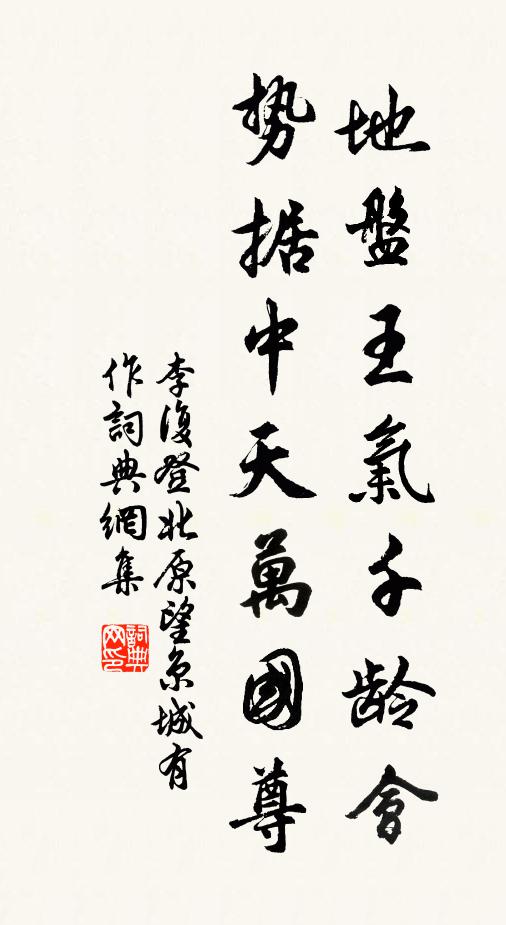 地盤王氣千龄會
势据中天萬國尊
李復登北原望京城有
作詞典網集
詞典
网印